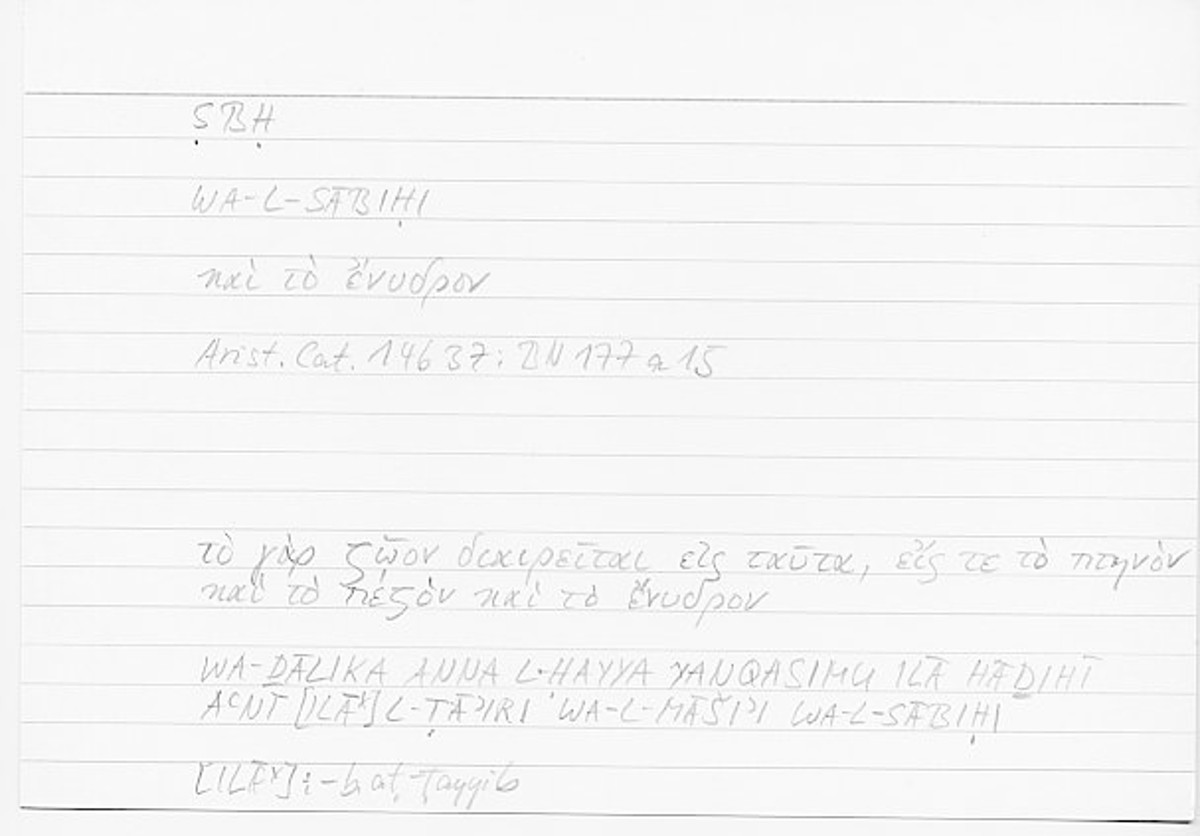 ṢBḤ
WA-L-SĀBIḤI
καὶ τὸ ἔνυδρον
Arist. Cat. 14b37: 177a15
τὸ γὰρ ζῷον διαιρεῖται εἰς ταῦτα, εἴς τε τὸ πτηνὸν
καὶ τὸ πέζὸν καὶ τὸ ἔνυδρον
WA-ḎĀLIKA ANNA L-HAYYA YANQASIMU ILĀ HĀḎIHĪ
AʿNĪ [ILĀˣ] L-ṬĀʾIRI WA-L-MĀŠIʾI WA-L-SĀBIḤI
[ILĀˣ]: – b. aṭ-Ṭayyib